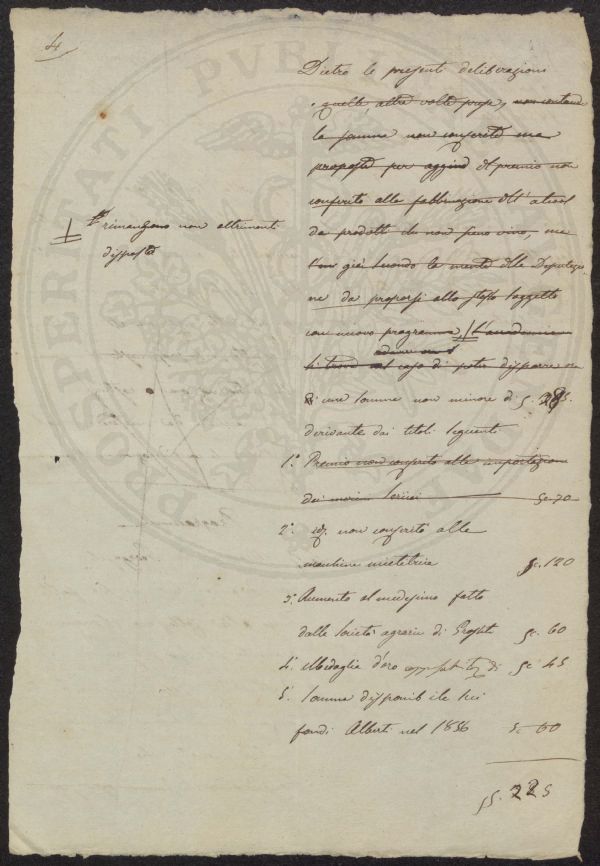 4
Dietro le presenti deliberazioni
e quelle altre volte prese, non contando
la somma non conferita ma
proposta per aggiud il premio non
conferito alla fabbricazione dell'alcool
da prodotti che non sieno vino, ma
già secondo la mente della Deputazio
ne da proporsi allo stesso soggetto
con nuovo programma // L'accademia
si trova nel caso di poter disporre
di una somma non minore di sc. 285.
derivante dai titoli seguenti
rimangono non altrimenti
disposte
1°. Premio non conferito alla importazione
dei sc. 70
2°. id. non conferito alle
macchine mietitrice sc. 120
3°. Aumento al medesimo fatto
dalla Società agraria di Grosseto sc. 60
4°. Medaglia d'oro di sc. 45
5°. Somma disponibile sui
fondi Alberti nel 1856 sc. 60
sc. 225
PROSPERITATI PVBLICAE